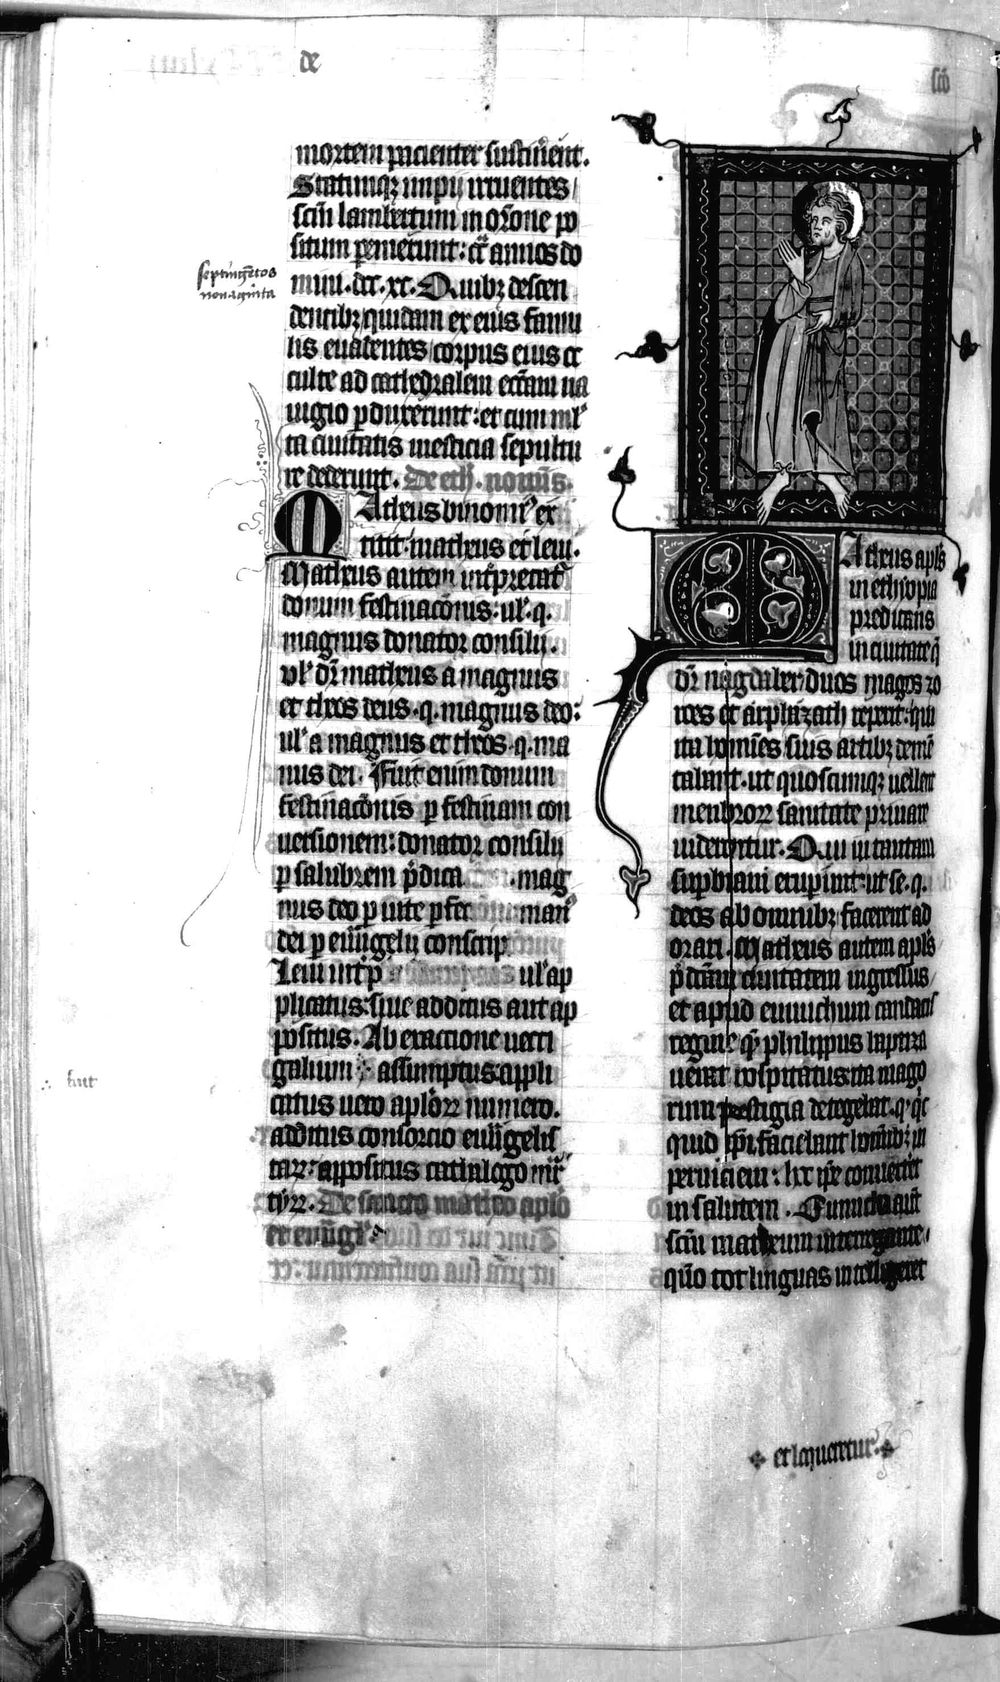 de
mortem pacienter sustin̄ent.
Statimqꝫ impij irruentes /
scm̄ lambertum in or̄one po
situm peremerunt: cͣ annos do
mini .dcc. xc. Quibꝫ descen
dentibꝫ quidam ex eius famu
lis euadentes / corpus eius oc
culte ad cathedralem eccāam na
uigio ꝑ duxerunt: et cum ml̉
ta ciuitatis mesticia sepultu
re dederunt. De eth. nominis.
Matheus binomiꝰ ex
titit: matheus et leui.
Matheus autem int̓pretat̉
donum festinacōnis: ul̉. q.
magnus donator consilij.
vl̉ dr̄ matheus a magnus
et theos deus. q. magnus deo:
ul̉ a magnus et theos. q. ma
nus dei. Fuit enim donum
festinacōnis ꝑ festinam con
uersionem: donator consilij
ꝑ salubrem p̄dica .mag
nus deo ꝑ uite ꝑfec manꝰ
dei ꝑ euūgelij conscrip
Leui int̓p ul̉ ap
plicatus: siue additus aut ap
positus. Ab exaccione uecti
galium ⁘ assumptus: appli
catus uero aplōꝝ numero.
additus consorcio euūgelis
taꝝ: appositus cathalogo mr̄
tyꝝ. De sancto matheo aplo
et euūgl̉.
septingētos
nonaginta
⁘ fuit
sco
Atheus apls̄
in ethyopia
predicans
in ciuitate q̄
dr̄ nagdaber / duos magos zo
roes et arphazath reperit: qui
ita homīes suis artibꝫ demē
tabant. ut quoscumqꝫ uellent
menbroꝝ sanitate priuare
uiderentur. Qui in tantam
supbiam erupunt: ut se. q.
deos ab omnibꝫ facerent ad
orari. Matheus autem apl̄s
p̄dictam ciuitatem ingressus /
et apud eunuchum candacis
regine q̄ philippus baptiza
uerat hospitatus: ita mago
rum prestigia detegebat. q. q̓c
quid ip̄i faciebant hominibꝫ in
perniciem: hic ip̄e conuertet̉
in salutem. Eunuchus aut̄
scm̄ matheum interrogante /
quō tot linguas intelligeret
✥ et loqueretur. ✥